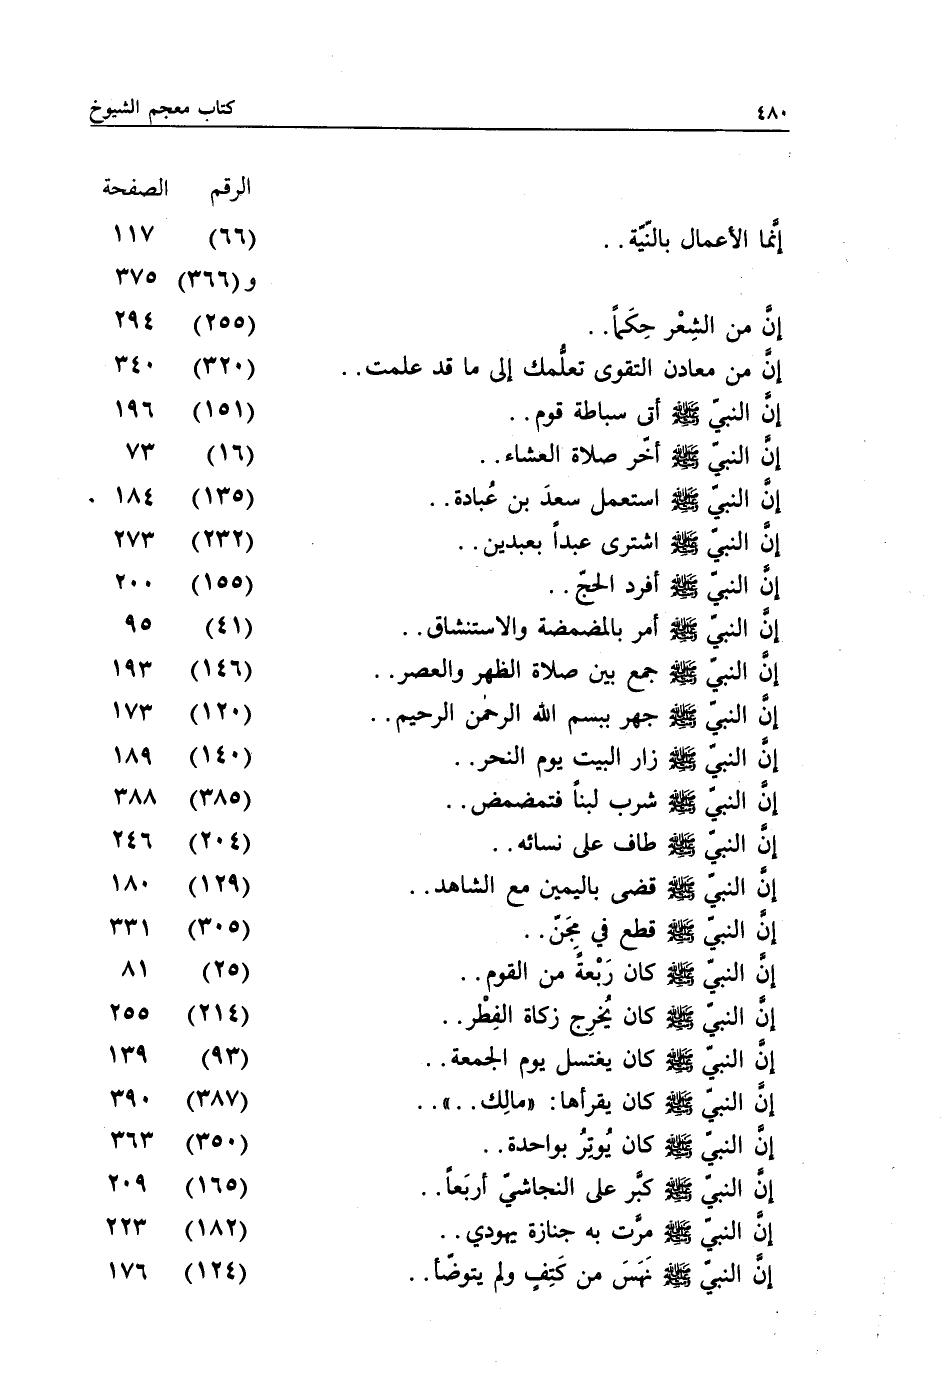 ٤٨٠ كتاب معجم الشيوخ
الرقم الصفحة
إنَّما الأعمال بالنّيّة . . (٦٦) ١١٧
و (٣٦٦) ٣٧٥
إنَّ من الشِعْر حِكَماً . . (٢٥٥) ٢٩٤
إنَّ من معادن التقوى تعلُّمك إلى ما قد علمت . . (٣٢٠) ٣٤٠
إنَّ النبيّ ﷺ أتى سباطة قوم . . (١٥١) ١٩٦
إنَّ النبيّ ﷺ أخّر صلاة العشاء . . (١٦) ٧٣
إنَّ النبيّ ﷺ استعمل سعدَ بن عُبادة . . (١٣٥) ١٨٤
إنَّ النبيّ ﷺ اشترى عبداً بعبدين . . (٢٣٢) ٢٧٣
إنَّ النبيّ ﷺ أفرد الحجّ . . (١٥٥) ٢٠٠
إنَّ النبيّ ﷺ أمر بالمضمضة والاستنشاق . . (٤١) ٩٥
إنَّ النبيّ ﷺ جمع بين صلاة الظهر والعصر . . (١٤٦) ١٩٣
إنَّ النبيّ ﷺ جهر ببسم الله الرحمٰن الرحيم . . (١٢٠) ١٧٣
إنَّ النبيّ ﷺ زار البيت يوم النحر . . (١٤٠) ١٨٩
إنَّ النبيّ ﷺ شرب لبناً فتمضمض . . (٣٨٥) ٣٨٨
إنَّ النبيّ ﷺ طاف على نسائه . . (٢٠٤) ٢٤٦
إنَّ النبيّ ﷺ قضى باليمين مع الشاهد . . (١٢٩) ١٨٠
إنَّ النبيّ ﷺ قطع في مِجَنّ . . (٣٠٥) ٣٣١
إنَّ النبيّ ﷺ كان رَبْعةً من القوم . . (٢٥) ٨١
إنَّ النبيّ ﷺ كان يُخرِج زكاة الفِطْر . . (٢١٤) ٢٥٥
إنَّ النبيّ ﷺ كان يغتسل يوم الجمعة . . (٩٣) ١٣٩
إنَّ النبيّ ﷺ كان يقرأها: «مالِك . .» . . (٣٨٧) ٣٩٠
إنَّ النبيّ ﷺ كان يُوتِرُ بواحدة . . (٣٥٠) ٣٦٣
إنَّ النبيّ ﷺ كبَّر على النجاشيّ أربَعاً . . (١٦٥) ٢٠٩
إنَّ النبيّ ﷺ مرَّت به جنازة يهودي . . (١٨٢) ٢٢٣
إنَّ النبيّ ﷺ نَهَسَ من كَتِفٍ ولم يتوضّأ . . (١٢٤) ١٧٦